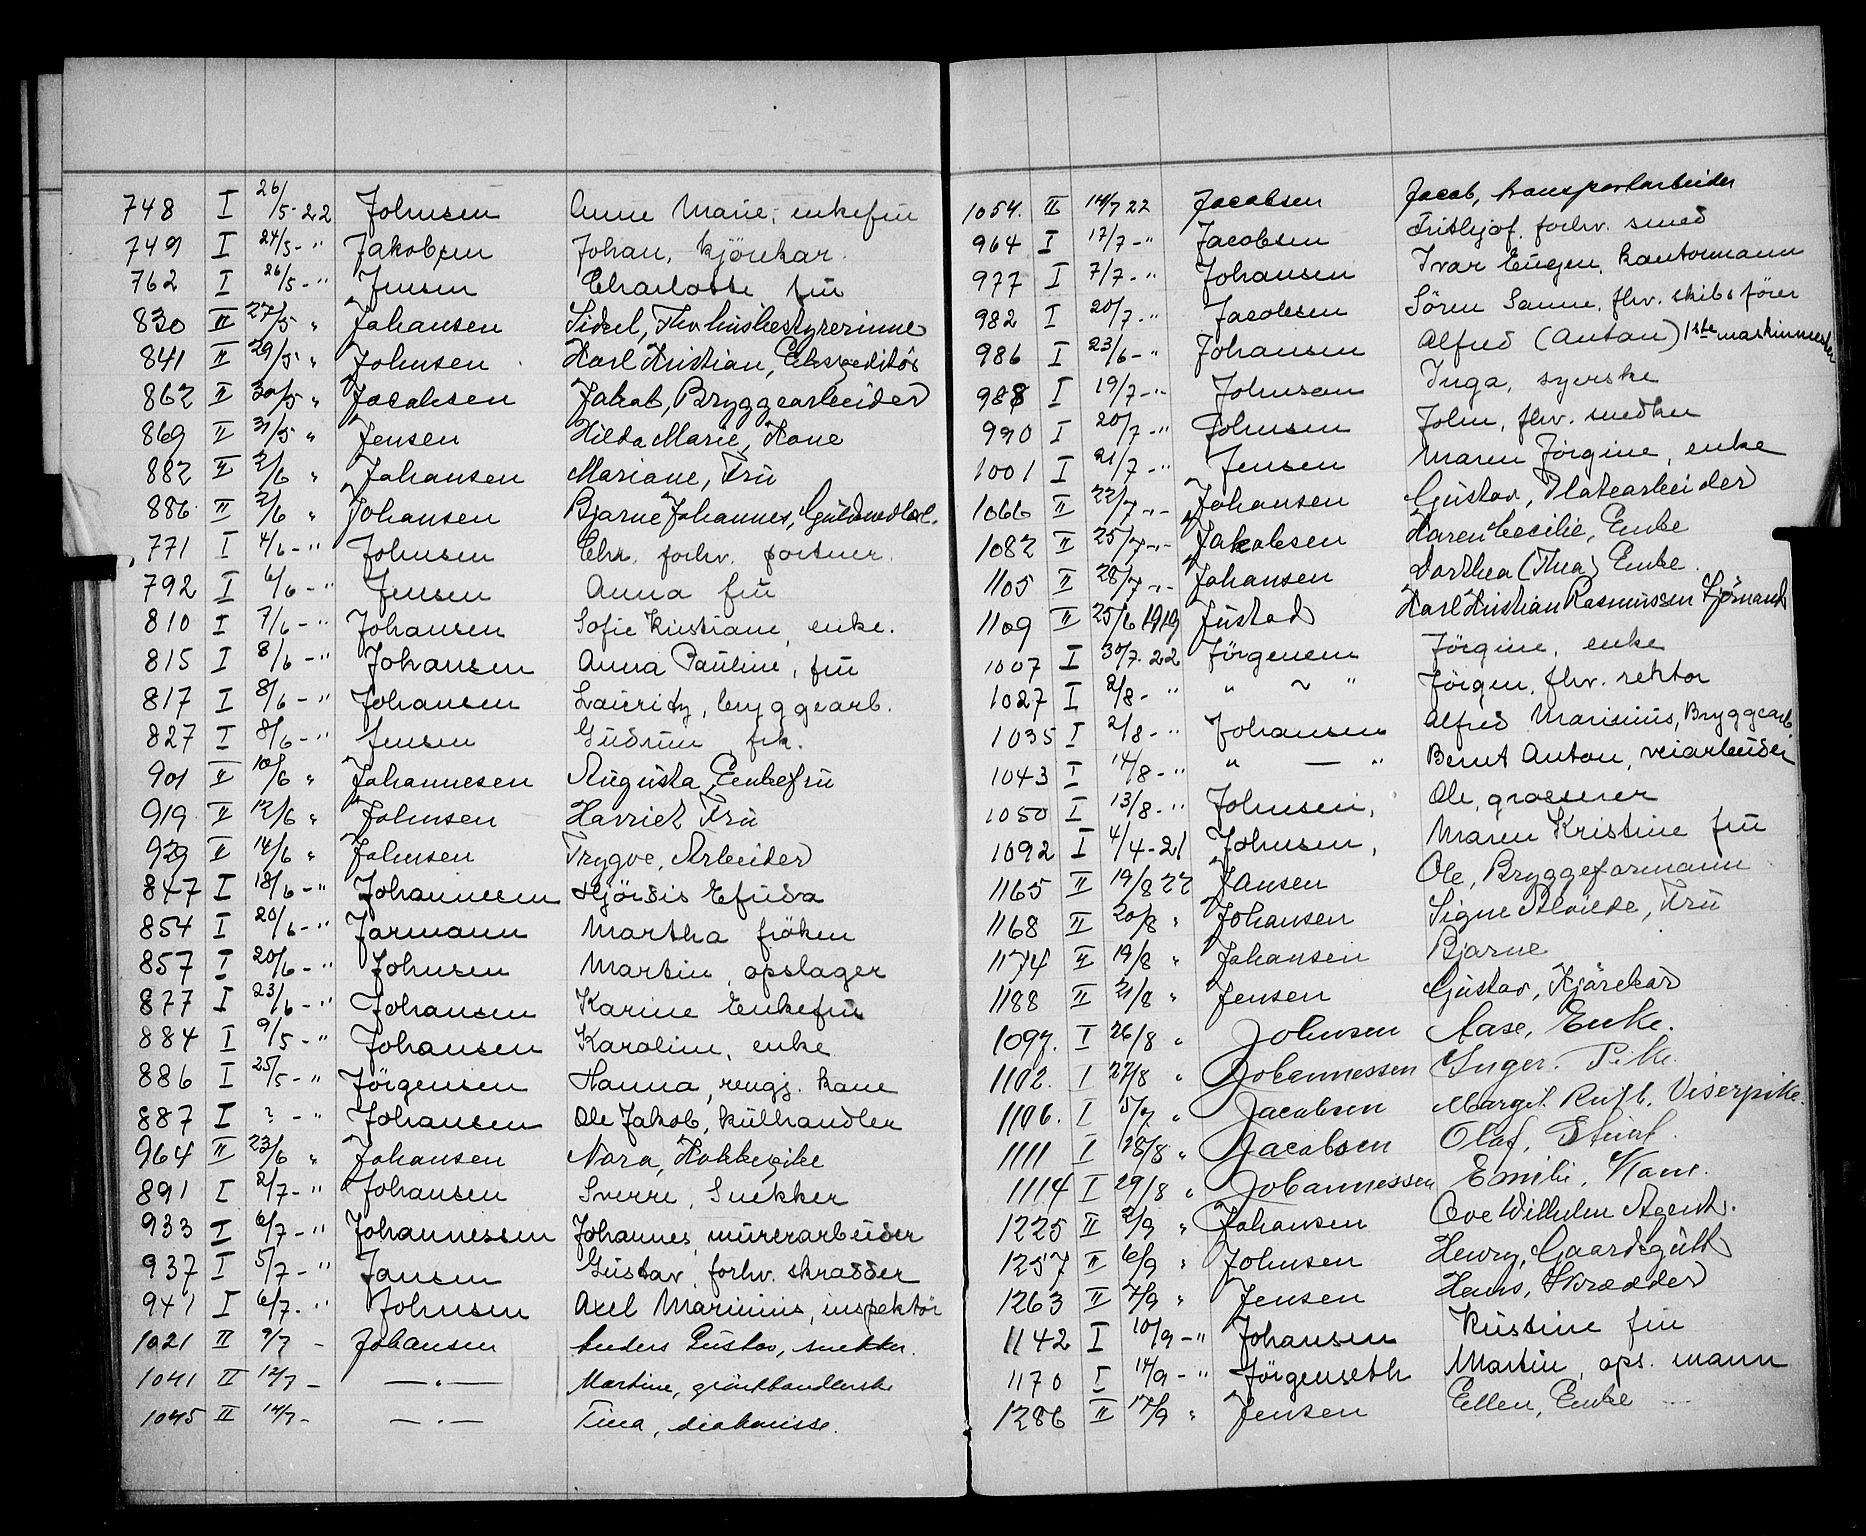 748 I 26/5-22 Johnsen Anne Marie, enkefru
749 I 24/5-" Jakobsen Johan, kjörekar.
762 I 26/5-" Jensen Charlotte fru
830 II 27/5 " Johansen Sidsel, Fhv husbestyrerinne
841 II 29/5 " Johnsen Karl Kristian, Ekspeditör
862 II 30/5 " Jacobsen Jakob, Bryggearbeider
869 II 31/5 " Jensen Hilda Marie, Kone
882 II 2/6 " Johansen Mariane, Fru
886 II 2/6 " Johansen Bjarne Johannes,
771 I 4/6-" Johnsen Chr. forhv. portner.
792 I 6/6-" Jensen Anna fru
810 I 7/6-" Johansen Sofie Kristiane, enke.
815 I 8/6-" Johansen Anna Pauline, fru
817 I 8/6-" Johansen Lauritz, bryggearb.
827 I 8/6-" Jensen Gudrun frk.
901 II 10/6 " Johannesen Augusta, Enkefru
919 II 12/6 " Johnsen Harriet Fru
929 II 14/6 " Johnsen Trygve, Arbeider
847 I 18/6-" Johannesen Hjördis Efuda
854 I 20/6-" Jarmann Martha fröken
857 I 20/6-" Johnsen Martin, opslager
877 I 23/6-" Johansen Karine Enkefru
884 I 9/5-" Johansen Karoline, enke
886 I 25/5-" Jörgensen Hanna, rengj. kone
887 I ?-" Johansen Ole Jakob, kulhandler
964 II 23/6 " Johansen Nora, Kokkepike
891 I 2/7-" Johansen Sverre, Snekker
933 I 6/7-" Johannessen Johannes, murerarbeider
937 I 5/7-" Jansen Gustav, forhv. skradder
941 I 6/7-" Johnsen Axel Marinius, inspektör
1021 II 9/7 - Johansen Anders Gustav, snekker.
1041 II 12/7 - —.— Martine, grönthandlerske
1045 II 14/7 - —.— Tina, diakonisse.
1054. II 14/7 22 Jacobsen Jacob, transportarbeider
964 I 17/7-" Jacobsen Fritjof. forhv. smed
977 I 7/7-" Johansen Ivar Eugen, kontormann
982 I 20/7-" Jacobsen Sören Sanne, fhv. skibsförer
986 I 23/6-" Johansen Alfred (Anton) 1ste maskinmester
988 I 19/7-" Johnsen Inga, syerske
990 I 20/7-" Johnsen John, fhv. snedker
1001 I 21/7-" Jensen Maren Jörgine, enke
1066 II 22/7-" Johansen Gustav, Platearbeider
1082 II 25/7-" Jakobsen Karen Cecilie, Enke
1105 II 28/7-" Johansen Dorthea (Thea) Enke.
1109 II 25/6 1919 Justad Karl Kristian Rasmussen Sjömand
1007 I 30/7. 22 Jörgensen Jörgine, enke
1027 I 2/8-" " ~ " Jörgen, fhv. rektor
1035 I 2/8-" Johansen Alfred Marinius, Bryggearb
1043 I 14/8-" " — " Bernt Anton, veiarbeider
1050 I 13/8-" Johnsen, Ole, grosserer
1092 I 4/4-21 Johnsen, Maren Kristine fru
1165 II 19/8 22 Jansen Ole, Bryggeformann
1168 II 20/8 " Johansen Signe Alvilde, Fru
1174 II 19/8 " Johansen Bjarne
1188 II 21/8 " Jensen Gustav, Kjörekar
1097. I 26/8 " Johnsen Aase, Enke.
1102. I 27/8 " Johannessen Inger. Pike.
1106. I 5/7 " Jacobsen Margit Ruth, Viserpike.
1111 I 28/8 " Jacobsen Olaf, Stuert.
1114 I 29/8 " Johannessen Emilie, Kone.
1225 II 2/9 " Johansen Ove Wilhelm Agent.
1257 II 6/9 " Johnsen Henry, Gaardsgutt
1263 II 7/9 " Jensen Hans, Skrædder
1142 I 10/9-" Johansen Kristine fru
1170 I 14/9-" Jörgenseth Martin, ops. mann
1286 II 17/9 " Jensen Ellen, Enke